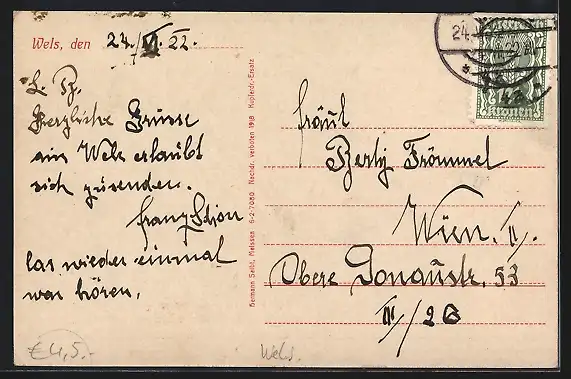 Wels, den 24./VI. 22.
L. B.
Herzliche Grüsse
aus Wels erlaubt
sich zusenden.
Franz
las wieder einmal
was hören.
Hermann Seibt, Meissen 6-2-7080 Nachdr. verboten 1918 Kupferdr.-Ersatz
Fräul
Berty Frömmel
Wien. II.
Obere Donaustr. 53
III/26
24.
€ 4,5.-
Wels.